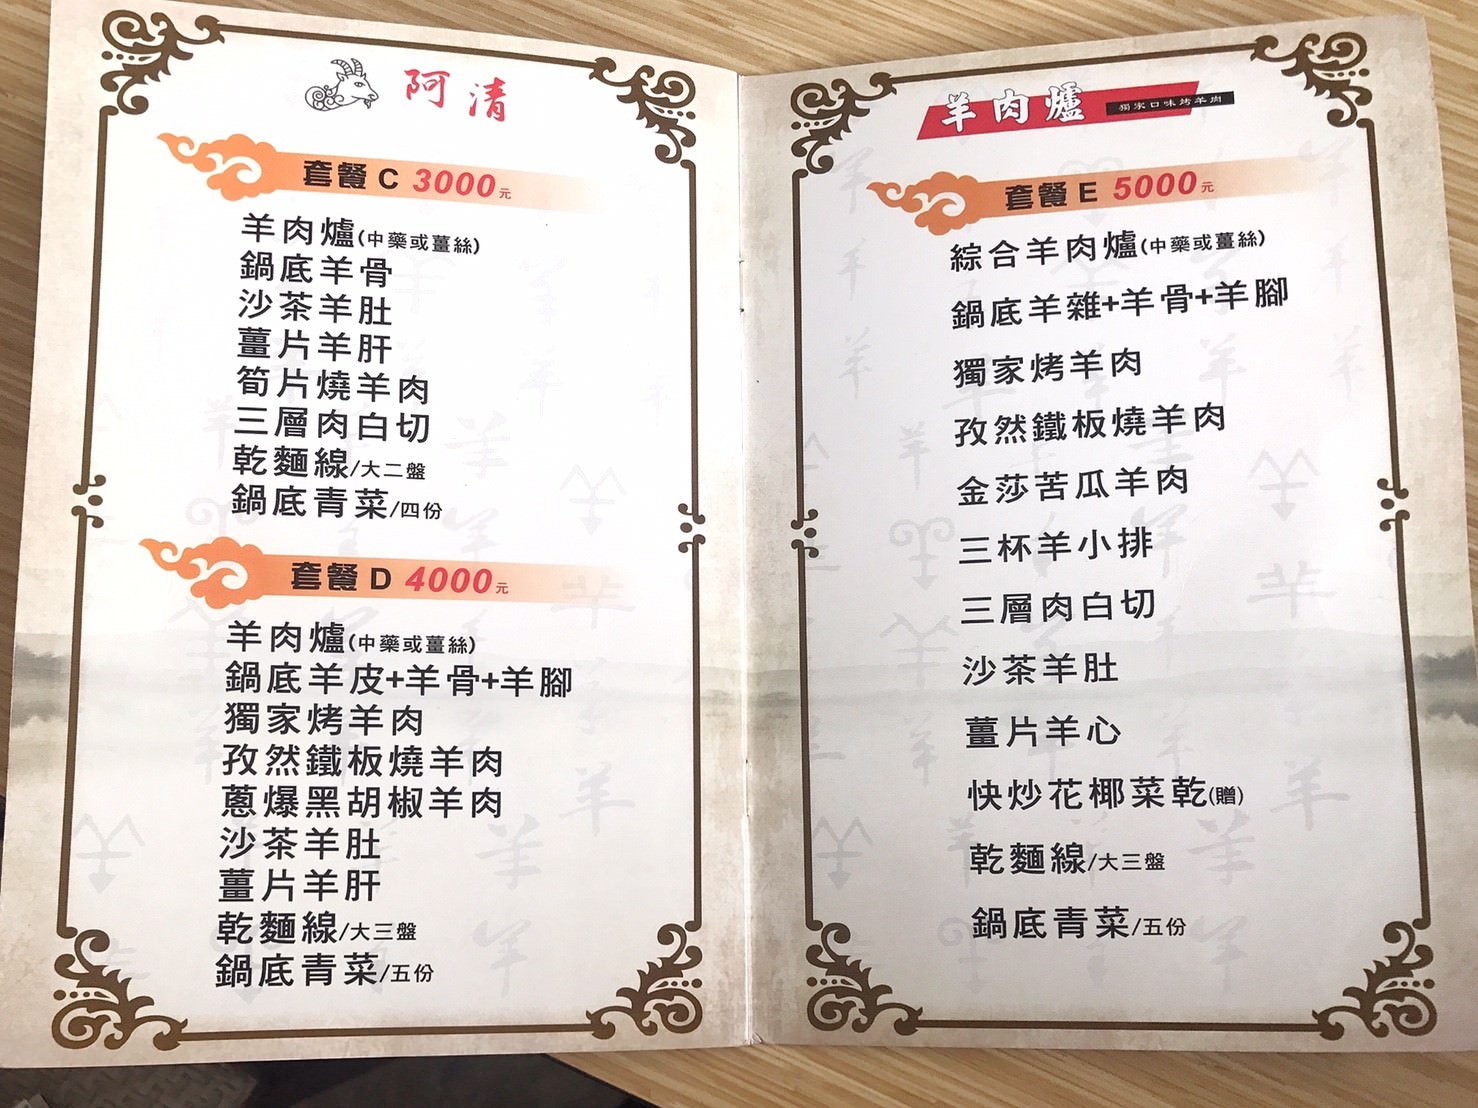 阿清
套餐 C 3000元
羊肉爐(中藥或薑絲)
鍋底羊骨
沙茶羊肚
薑片羊肝
筍片燒羊肉
三層肉白切
乾麵線/大二盤
鍋底青菜/四份
套餐 D 4000元
羊肉爐(中藥或薑絲)
鍋底羊皮+羊骨+羊腳
獨家烤羊肉
孜然鐵板燒羊肉
蔥爆黑胡椒羊肉
沙茶羊肚
薑片羊肝
乾麵線/大三盤
鍋底青菜/五份
羊肉爐 獨家口味烤羊肉
套餐 E 5000元
綜合羊肉爐(中藥或薑絲)
鍋底羊雜+羊骨+羊腳
獨家烤羊肉
孜然鐵板燒羊肉
金莎苦瓜羊肉
三杯羊小排
三層肉白切
沙茶羊肚
薑片羊心
快炒花椰菜乾(贈)
乾麵線/大三盤
鍋底青菜/五份